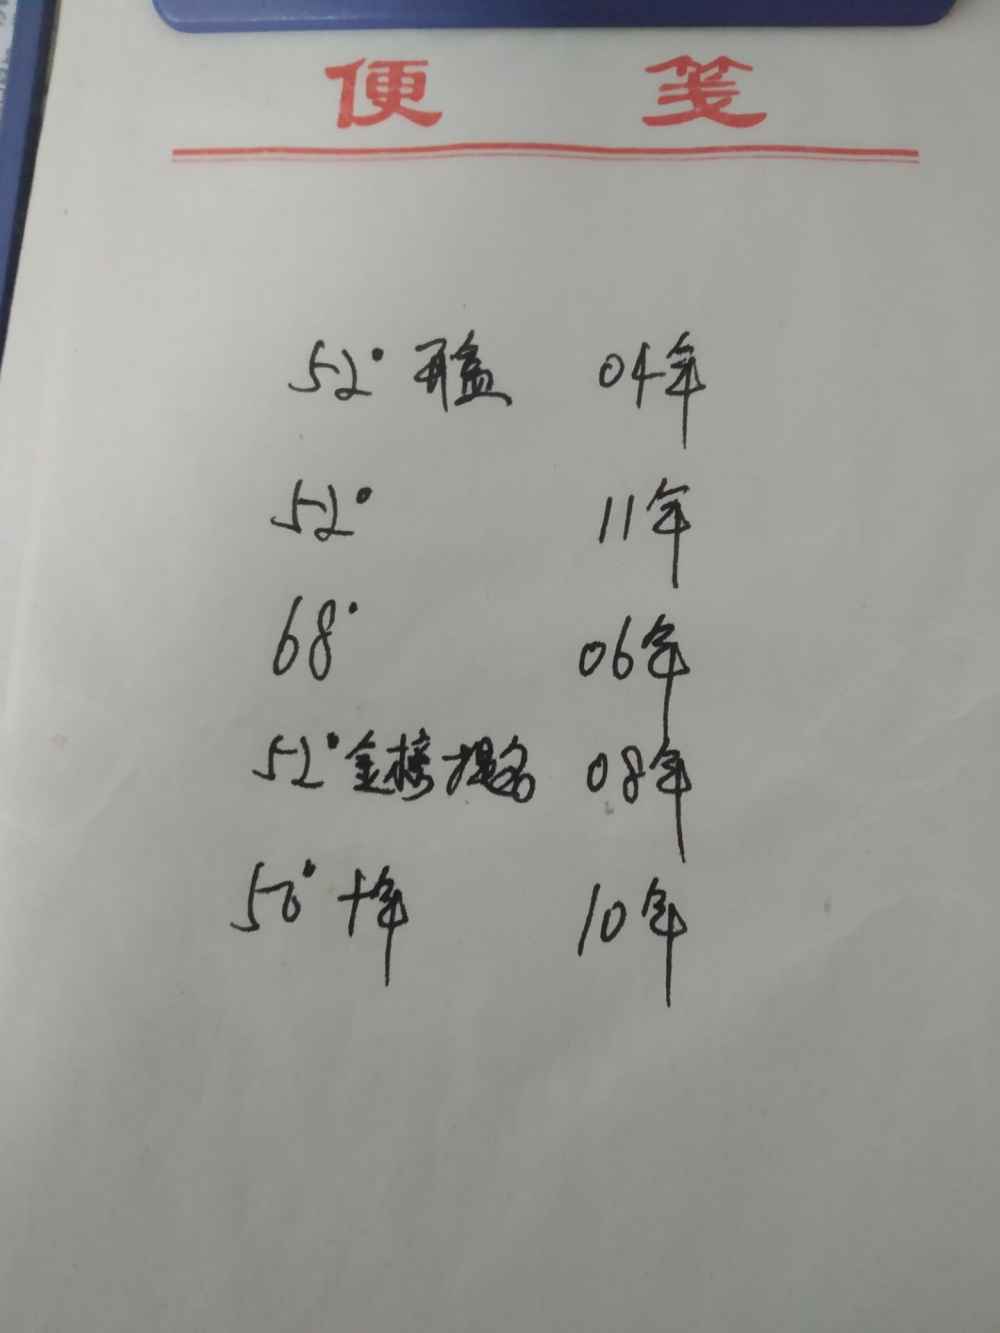 便 笺
52° 再盒 04年
52° 11年
68° 06年
52° 金榜提名 08年
50° 十年 10年